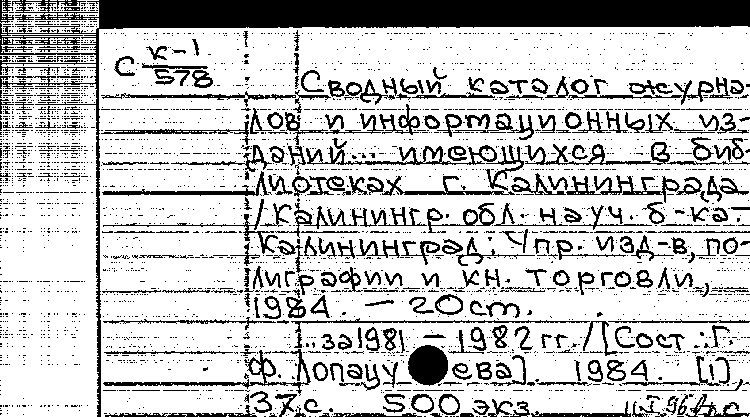 С к-1
578
Сводный каталог журна-
лов и информационных из-
даний... имеющихся в биб-
лиотеках г. Калининграда
/Калинингр. обл. науч. б-ка.-
Калининград: Упр. изд-в, по-
лиграфии и кн. торговли,
1984. - 20 cm.
..за 1981 - 1982 гг. / [Сост.: Г.
Ф. Лопацу ева]. 1984. [1],
37 с. 500 экз.